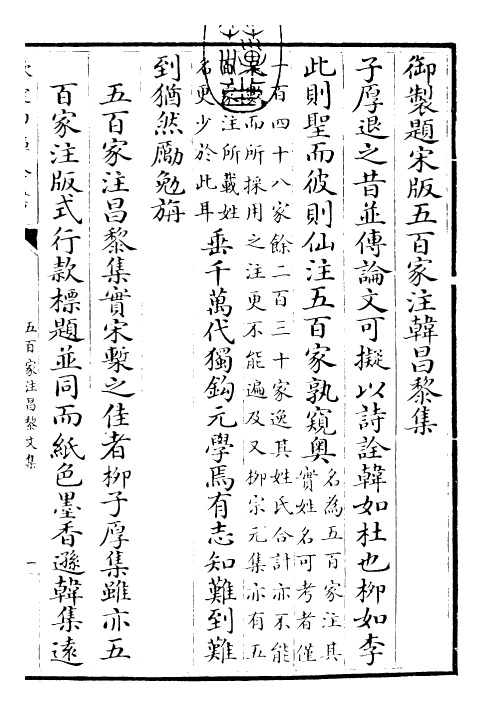 御製題宋版五百家注韓昌黎集
子厚退之昔並傳論文可擬以詩詮韓如杜也柳如李
此則聖而彼則仙注五百家孰窺奧名為五百家注其
實姓名可考者僅
一百四十八家餘二百三十家逸其姓氏合計亦不能
而所採用之注更不能遍及又柳宗元集亦有五
家注所載姓
名更少於此耳
垂千萬代獨鈎元學焉有志知難到難
到猶然勵勉旃
五百家注昌黎集實宋槧之佳者柳子厚集雖亦五
百家注版式行款標題並同而紙色墨香遜韓集遠
五百家注昌黎文集
一